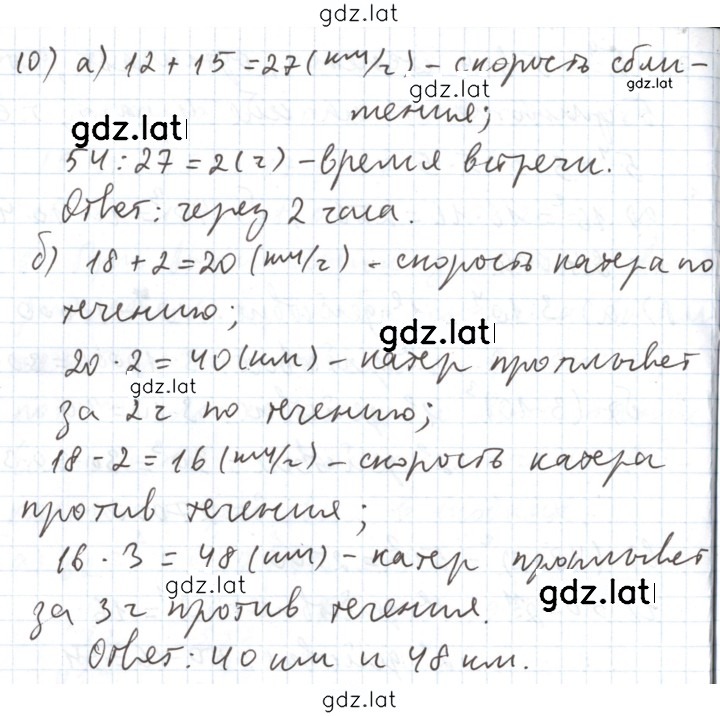 gdz.lat
10) а) 12 + 15 = 27 (км/г) - скорость сбли-
gdz.lat
gdz.lat
жения;
gdz.lat
54 : 27 = 2 (г) - время встречи.
Ответ: через 2 часа.
б) 18 + 2 = 20 (км/г) - скорость катера по
течению;
gdz.lat
20 · 2 = 40 (км) - катер проплывет
gdz.lat
за 2 г по течению;
18 - 2 = 16 (км/г) - скорость катера
против течения;
16 · 3 = 48 (км) - катер проплывет
gdz.lat
gdz.lat
за 3 г против течения.
Ответ: 40 км и 48 км.
gdz.lat